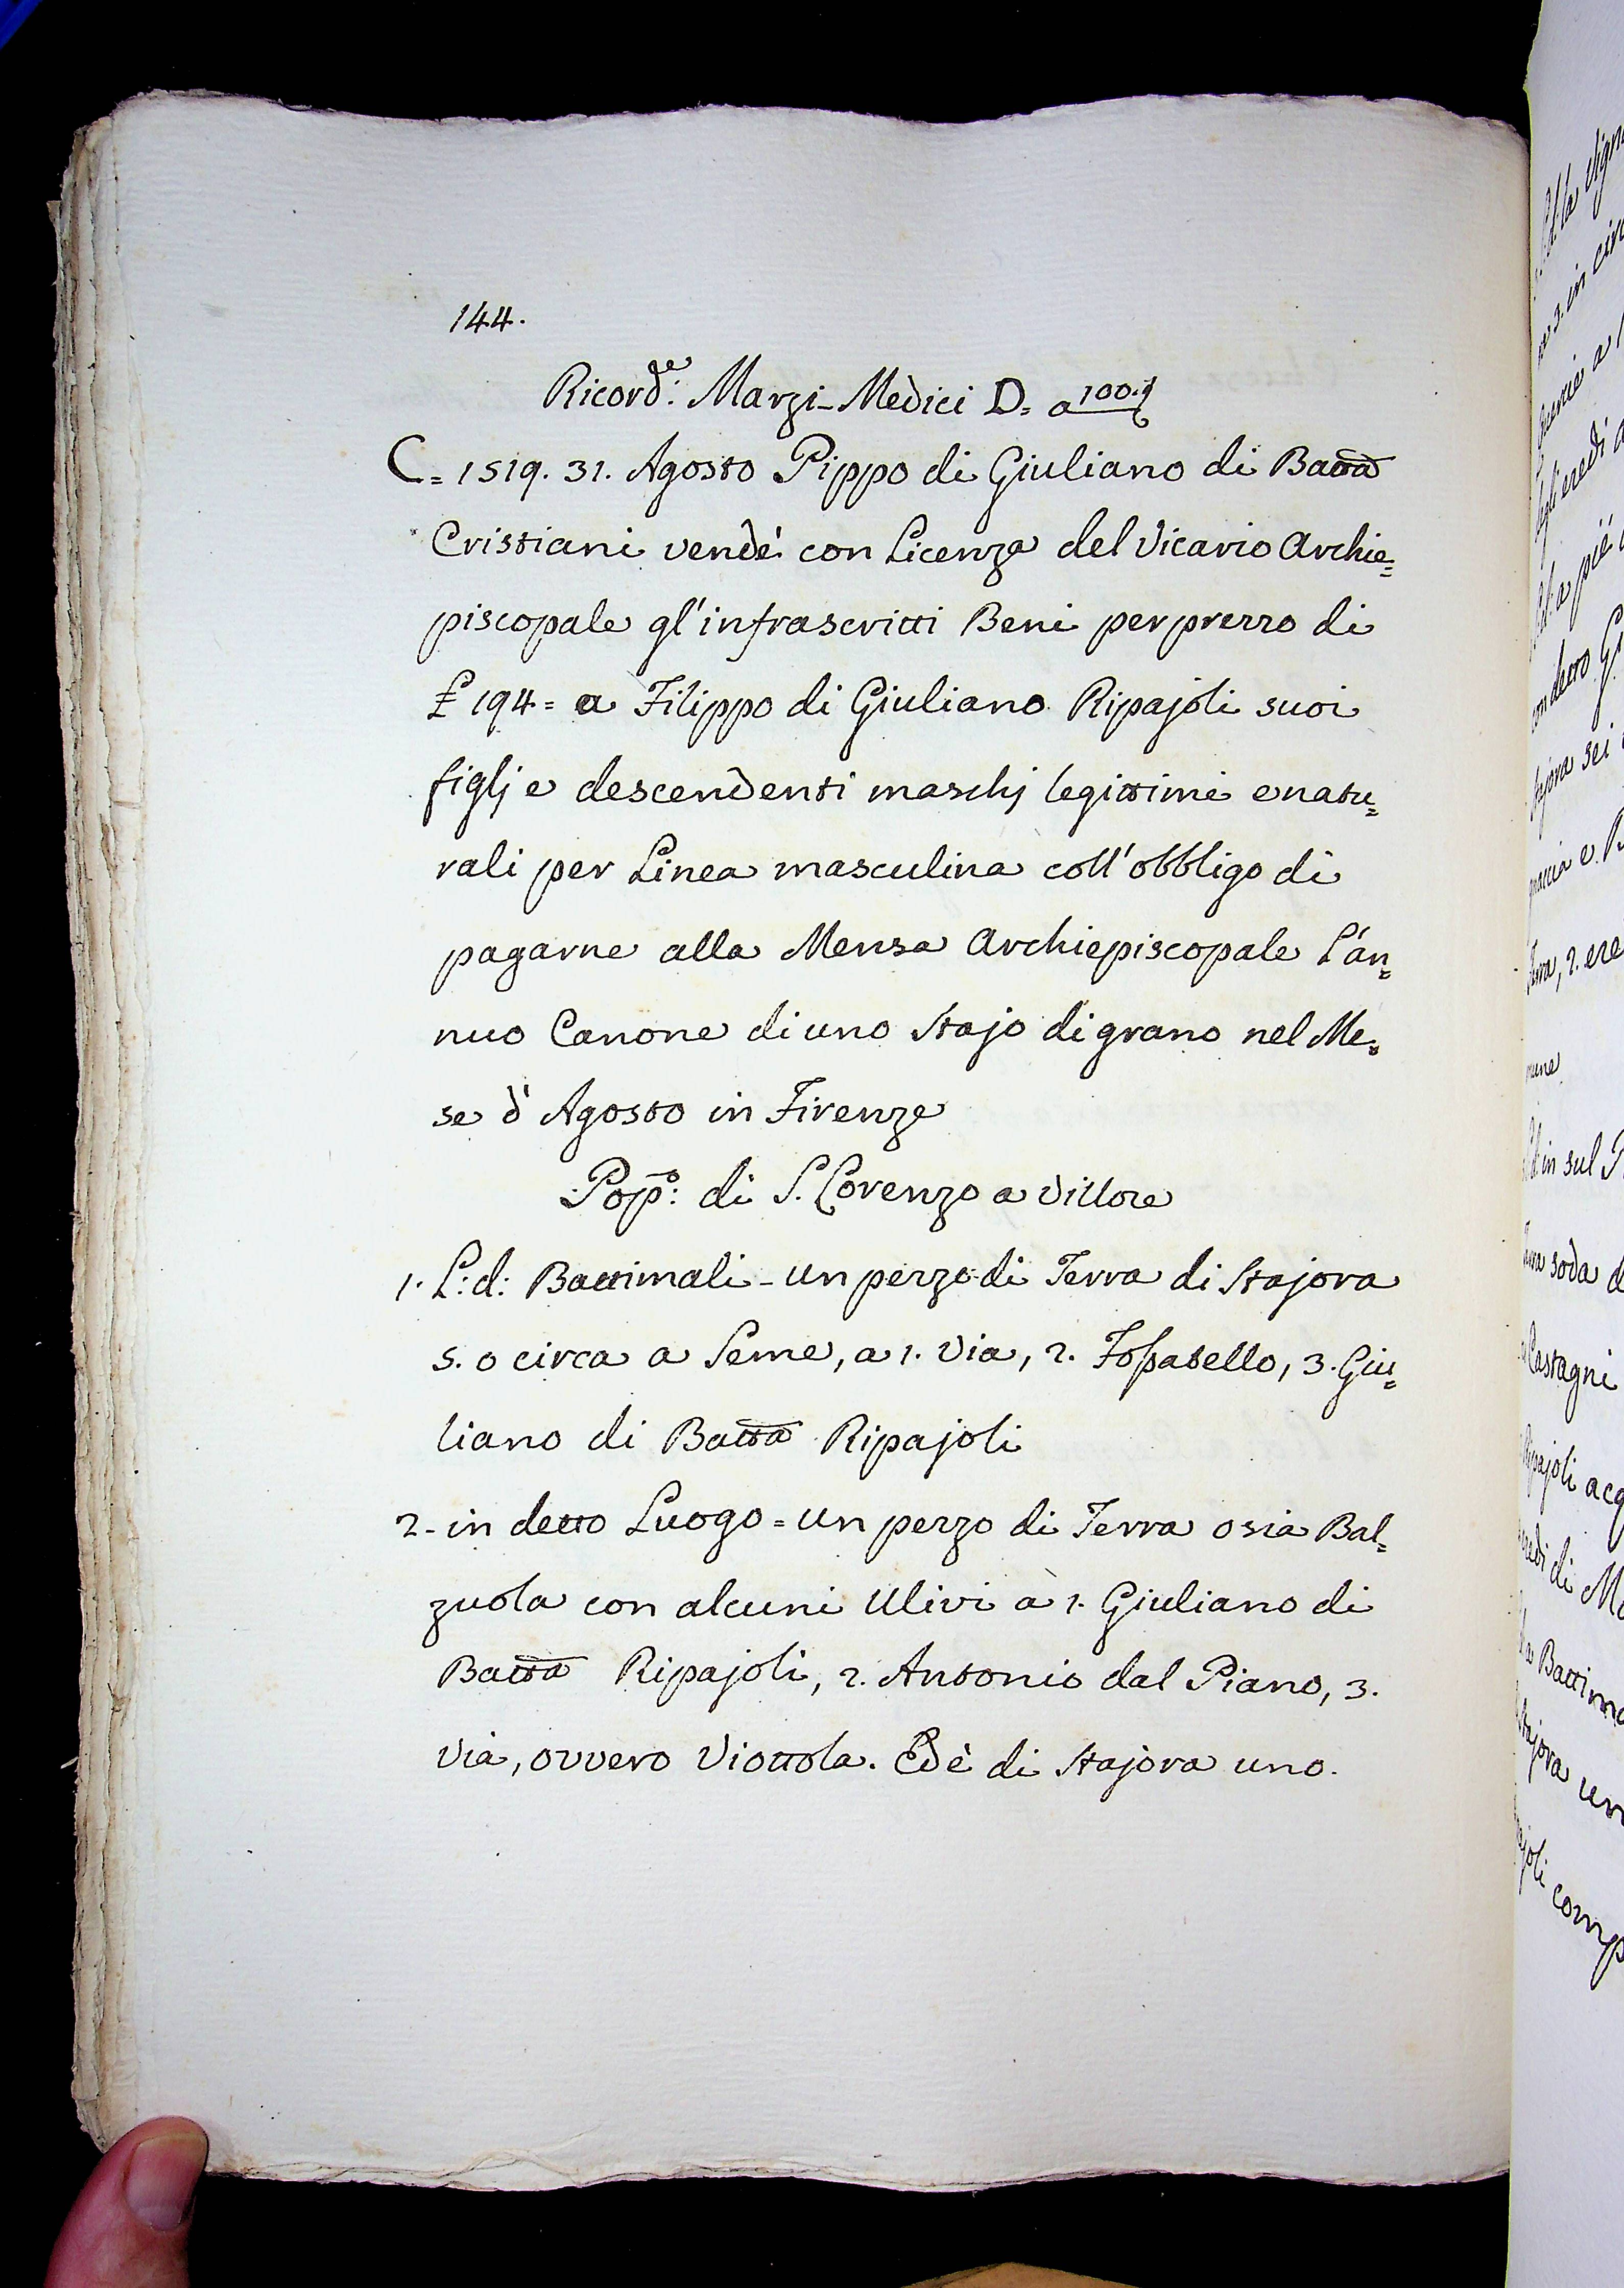 144.
Ricord.e: Marzi-Medici D= a 100.
C= 1519. 31. Agosto Pippo di Giuliano di Batta
Cristiani vendè con Licenza del Vicario Archie=
piscopale gl'infrascritti Beni per prezzo di
£ 194= a Filippo di Giuliano Ripajoli suoi
figlj e descendenti maschj legittimi e natu=
rali per Linea masculina coll'obbligo di
pagarne alla Mensa Archiepiscopale L'an=
nuo Canone di uno Stajo di grano nel Me=
se d'Agosto in Firenze
Popo: di S. Lorenzo a Villore
1. L:d: Battimali - un pezzo di Terra di Stajora
5. o circa a Seme, a 1. Via, 2. Fossatello, 3. Giu=
liano di Batta Ripajoli
2- in detto Luogo = un pezzo di Terra o sia Bal=
zuola con alcuni Ulivi à 1. Giuliano di
Batta Ripajoli, 2. Antonio dal Piano, 3.
Via, ovvero Viottola. Ed è di Stajora uno.
in sul
soda
Castagni
Ripajoli
di